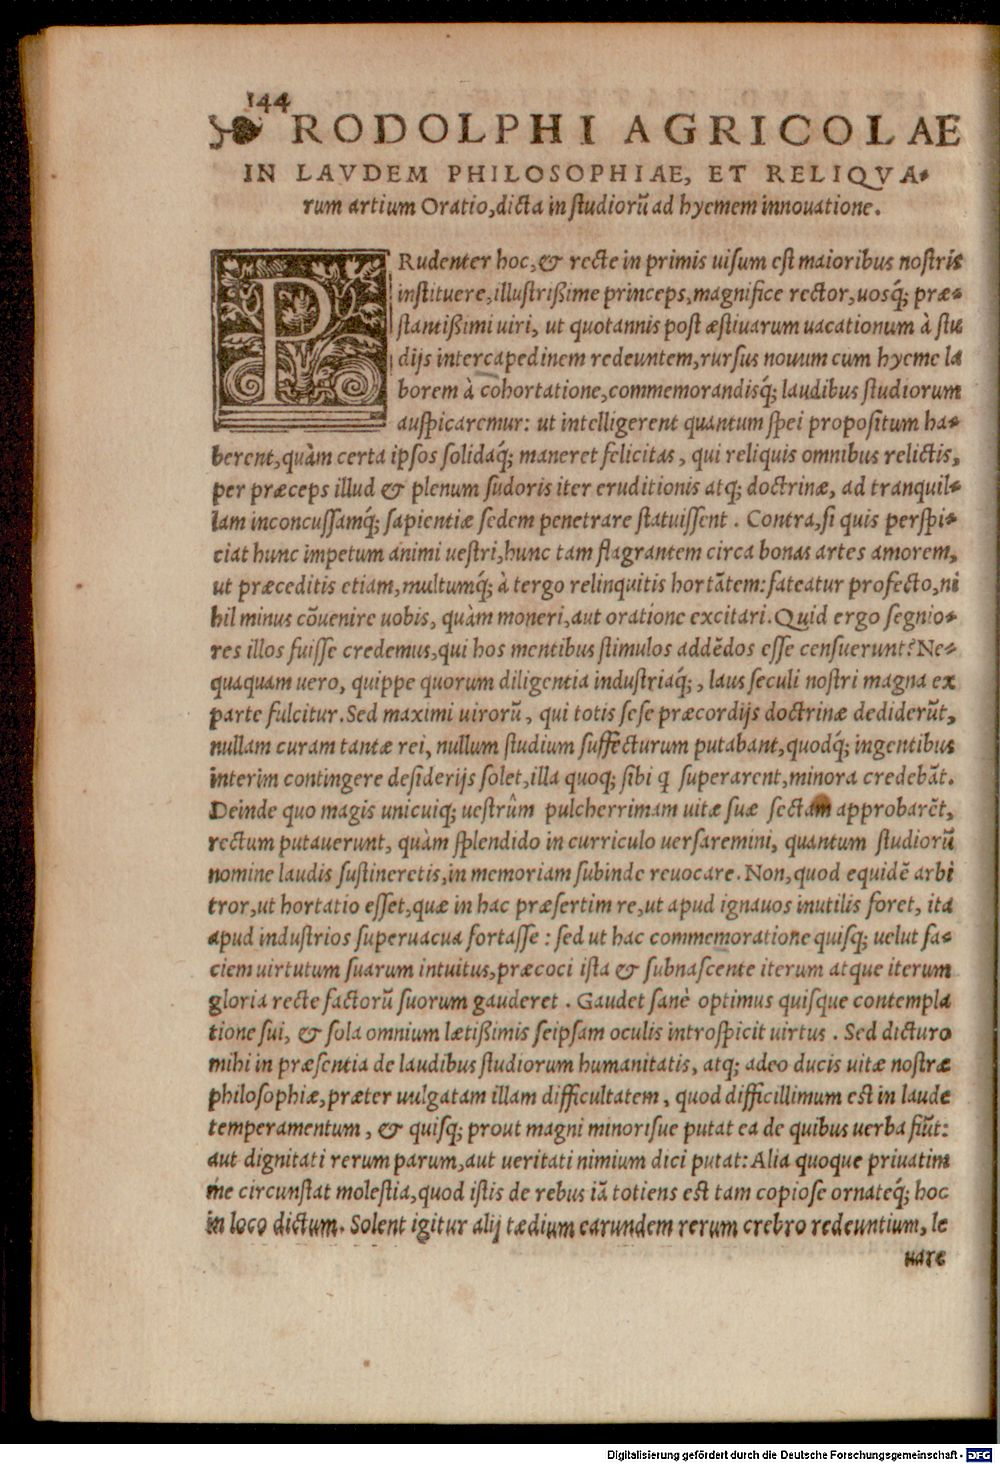 144
RODOLPHI AGRICOLAE
IN LAVDEM PHILOSOPHIAE, ET RELIQVA-
rum artium Oratio, dicta in ſtudiorũ ad hyemem innouatione.
PRudenter hoc, & recte in primis uiſum eſt maioribus noſtris
inſtituere, illuſtrißime princeps, magnifice rector, uosq́; præ-
ſtantißimi uiri, ut quotannis poſt æſtiuarum uacationum à ſtu
dijs intercapedinem redeuntem, rurſus nouum cum hyeme la
borem à cohortatione, commemorandisq́; laudibus ſtudiorum
auſpicaremur: ut intelligerent quantum ſpei propoſitum ha-
berent, quàm certa ipſos ſolidaq́; maneret felicitas, qui reliquis omnibus relictis,
per præceps illud & plenum ſudoris iter eruditionis atq; doctrinæ, ad tranquil-
lam inconcuſſamq́; ſapientiæ ſedem penetrare ſtatuiſſent. Contra, ſi quis perſpi-
ciat hunc impetum animi ueſtri, hunc tam flagrantem circa bonas artes amorem,
ut præceditis etiam, multumq́; à tergo relinquitis hortãtem: fateatur profecto, ni
hil minus cõuenire uobis, quàm moneri, aut oratione excitari. Quid ergo ſegnio-
res illos fuiſſe credemus, qui hos mentibus ſtimulos addẽdos eſſe cenſuerunt? Ne-
quaquam uero, quippe quorum diligentia induſtriaq́;, laus ſeculi noſtri magna ex
parte fulcitur. Sed maximi uirorũ, qui totis ſeſe præcordijs doctrinæ dediderũt,
nullam curam tantæ rei, nullum ſtudium ſuffecturum putabant, quodq́; ingentibus
interim contingere deſiderijs ſolet, illa quoq; ſibi q ſuperarent, minora credebãt.
Deinde quo magis unicuiq; ueſtrûm pulcherrimam uitæ ſuæ ſectam approbarẽt,
rectum putauerunt, quàm ſplendido in curriculo uerſaremini, quantum ſtudiorũ
nomine laudis ſuſtineretis, in memoriam ſubinde reuocare. Non, quod equidẽ arbi
tror, ut hortatio eſſet, quæ in hac præſertim re, ut apud ignauos inutilis foret, ita
apud induſtrios ſuperuacua fortaſſe: ſed ut hac commemoratione quiſq; uelut fa-
ciem uirtutum ſuarum intuitus, præcoci iſta & ſubnaſcente iterum atque iterum
gloria recte factorũ ſuorum gauderet. Gaudet ſanè optimus quiſque contempla
tione ſui, & ſola omnium lætißimis ſeipſam oculis introſpicit uirtus. Sed dicturo
mihi in præſentia de laudibus ſtudiorum humanitatis, atq; adeo ducis uitæ noſtræ
philoſophiæ, præter uulgatam illam difficultatem, quod difficillimum eſt in laude
temperamentum, & quiſq; prout magni minoriſue putat ea de quibus uerba fiũt:
aut dignitati rerum parum, aut ueritati nimium dici putat: Alia quoque priuatim
me circunſtat moleſtia, quod iſtis de rebus iã totiens eſt tam copioſe ornateq́; hoc
in loco dictum. Solent igitur alij tædium earundem rerum crebro redeuntium, le
uare
Digitalisierung gefördert durch die Deutsche Forschungsgemeinschaft - DFG